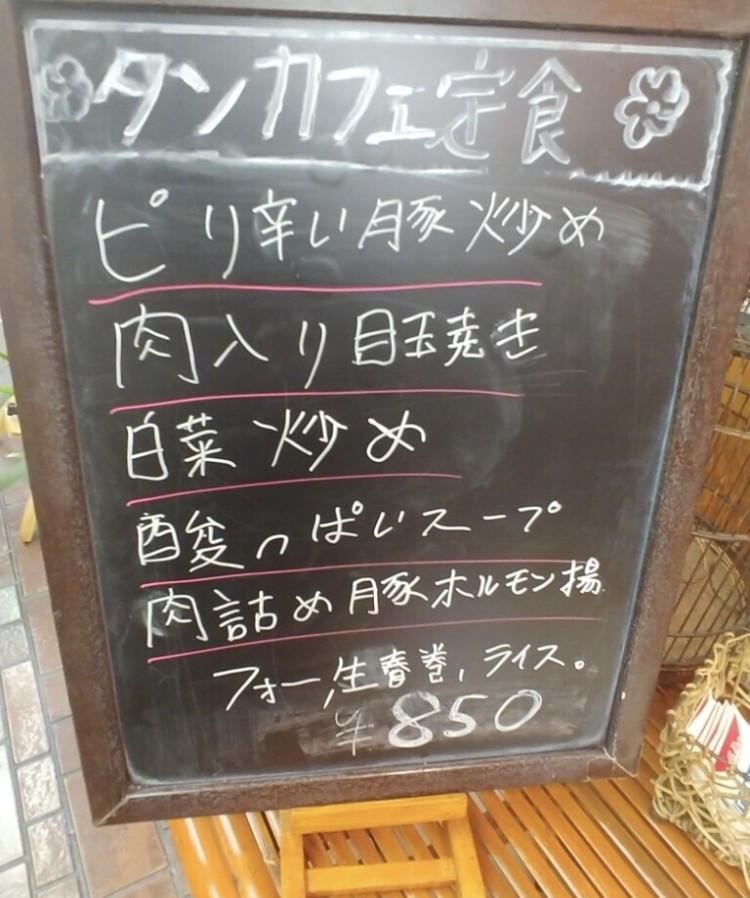 タンカフェ定食
ピリ辛い豚炒め
肉入り目玉焼き
白菜炒め
酸っぱいスープ
肉詰め豚ホルモン揚
フォー,生春巻,ライス。
¥850